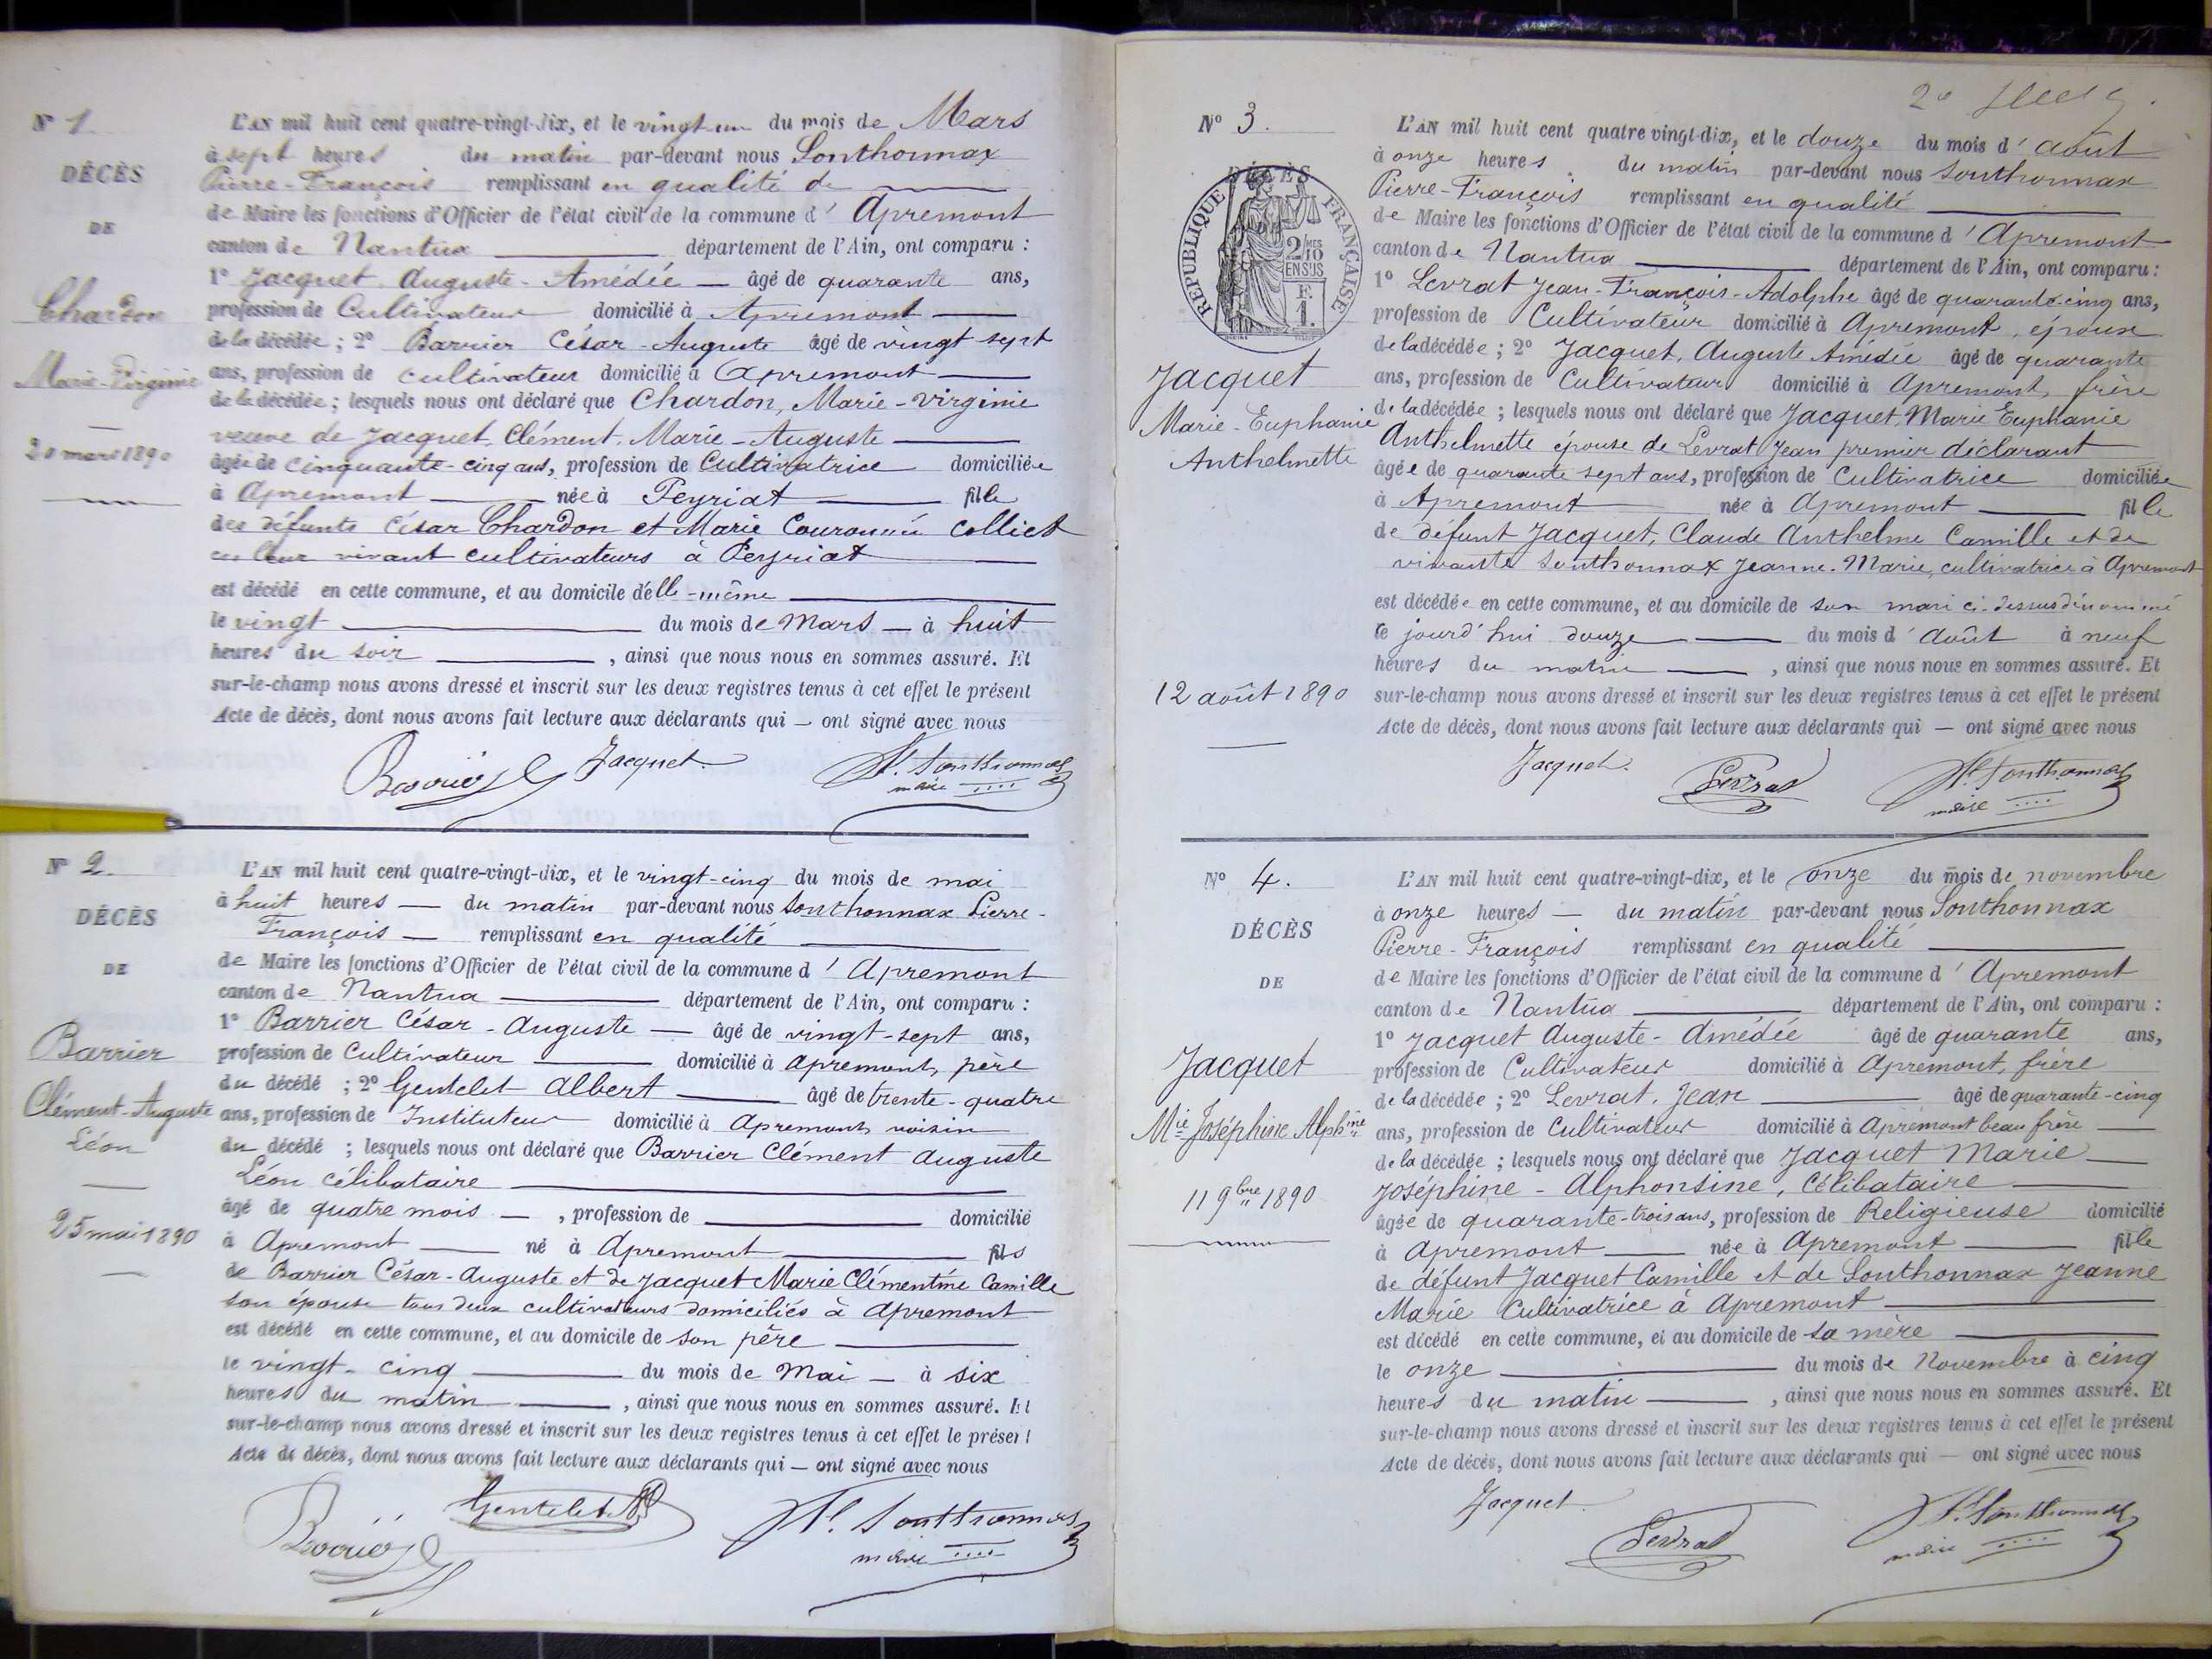 N° 1.
DÉCÈS
DE
Chardon
Marie-Virginie
20 mars 1890
L'AN mil huit cent quatre-vingt-dix, et le vingt-un du mois de Mars
à sept heures du matin par-devant nous Sonthonnax
Pierre-François remplissant en qualité de
de Maire les fonctions d'Officier de l'état civil de la commune d'Apremont
canton de Nantua département de l'Ain, ont comparu :
1° Jacquet Auguste-Amédée — âgé de quarante ans,
profession de Cultivateur domicilié à Apremont
de la décédée ; 2° Barrier César-Auguste âgé de vingt-sept
ans, profession de cultivateur domicilié à Apremont
de la décédée ; lesquels nous ont déclaré que Chardon, Marie-Virginie
veuve de Jacquet, Clément, Marie-Auguste
âgée de cinquante-cinq ans, profession de Cultivatrice domiciliée
à Apremont née à Peyriat fille
des défunts César Chardon et Marie Colliet
en leur vivant cultivateurs à Peyriat
est décédé en cette commune, et au domicile d'elle-même
le vingt du mois de Mars — à huit
heures du soir , ainsi que nous nous en sommes assuré. Et
sur-le-champ nous avons dressé et inscrit sur les deux registres tenus à cet effet le présent
Acte de décès, dont nous avons fait lecture aux déclarants qui — ont signé avec nous
Jacquet
Sonthonnax
maire
N° 2.
DÉCÈS
DE
Barrier
Clément-Auguste
Léon
25 mai 1890
L'AN mil huit cent quatre-vingt-dix, et le vingt-cinq du mois de mai
à huit heures — du matin par-devant nous Sonthonnax Pierre-
François — remplissant en qualité
de Maire les fonctions d'Officier de l'état civil de la commune d'Apremont
canton de Nantua département de l'Ain, ont comparu :
1° Barrier César-Auguste — âgé de vingt-sept ans,
profession de Cultivateur domicilié à Apremont, père
du décédé ; 2° Gentelet Albert âgé de trente-quatre
ans, profession de Instituteur domicilié à Apremont, voisin
du décédé ; lesquels nous ont déclaré que Barrier Clément Auguste
Léon célibataire
âgé de quatre mois — , profession de domicilié
à Apremont né à Apremont fils
de Barrier César-Auguste et de Jacquet Marie Clémentine Camille
son épouse tous deux cultivateurs domiciliés à Apremont
est décédé en cette commune, et au domicile de son père
le vingt-cinq du mois de Mai — à six
heures du matin , ainsi que nous nous en sommes assuré. Et
sur-le-champ nous avons dressé et inscrit sur les deux registres tenus à cet effet le présent
Acte de décès, dont nous avons fait lecture aux déclarants qui — ont signé avec nous
Gentelet
Sonthonnax
maire
N° 3.
DÉCÈS
RÉPUBLIQUE FRANÇAISE
2/10 MES
EN SUS
F.
1.
Jacquet
Marie-Euphanie
Anthelmette
12 août 1890
L'AN mil huit cent quatre vingt-dix, et le douze du mois d'août
à onze heures du matin par-devant nous Sonthonnax
Pierre-François remplissant en qualité
de Maire les fonctions d'Officier de l'état civil de la commune d'Apremont
canton de Nantua département de l'Ain, ont comparu :
1° Levrat Jean-François-Adolphe âgé de quarante-cinq ans,
profession de Cultivateur domicilié à Apremont, époux
de la décédée ; 2° Jacquet, Auguste Amédée âgé de quarante
ans, profession de Cultivateur domicilié à Apremont, frère
de la décédée ; lesquels nous ont déclaré que Jacquet, Marie Euphanie
Anthelmette épouse de Levrat Jean premier déclarant
âgée de quarante sept ans, profession de Cultivatrice domiciliée
à Apremont née à Apremont fille
de défunt Jacquet, Claude Anthelme Camille et de
vivante Sonthonnax Jeanne-Marie, cultivatrice à Apremont
est décédée en cette commune, et au domicile de son mari ci-dessus dénommé
le jourd'hui douze du mois d'août à neuf
heures du matin , ainsi que nous nous en sommes assuré. Et
sur-le-champ nous avons dressé et inscrit sur les deux registres tenus à cet effet le présent
Acte de décès, dont nous avons fait lecture aux déclarants qui — ont signé avec nous
Jacquet
Levrat
Sonthonnax
maire
N° 4.
DÉCÈS
DE
Jacquet
Mie Joséphine Alphine
11 9bre 1890
L'AN mil huit cent quatre-vingt-dix, et le onze du mois de novembre
à onze heures — du matin par-devant nous Sonthonnax
Pierre-François remplissant en qualité
de Maire les fonctions d'Officier de l'état civil de la commune d'Apremont
canton de Nantua département de l'Ain, ont comparu :
1° Jacquet Auguste-Amédée âgé de quarante ans,
profession de Cultivateur domicilié à Apremont, frère
de la décédée ; 2° Levrat, Jean âgé de quarante-cinq
ans, profession de Cultivateur domicilié à Apremont beau frère
de la décédée ; lesquels nous ont déclaré que Jacquet Marie
Joséphine-Alphonsine, Célibataire
âgée de quarante-trois ans, profession de Religieuse domicilié
à Apremont née à Apremont fille
de défunt Jacquet Camille et de Sonthonnax Jeanne
Marie Cultivatrice à Apremont
est décédé en cette commune, et au domicile de sa mère
le onze du mois de Novembre à cinq
heures du matin , ainsi que nous nous en sommes assuré. Et
sur-le-champ nous avons dressé et inscrit sur les deux registres tenus à cet effet le présent
Acte de décès, dont nous avons fait lecture aux déclarants qui — ont signé avec nous
Jacquet
Levrat
Sonthonnax
maire